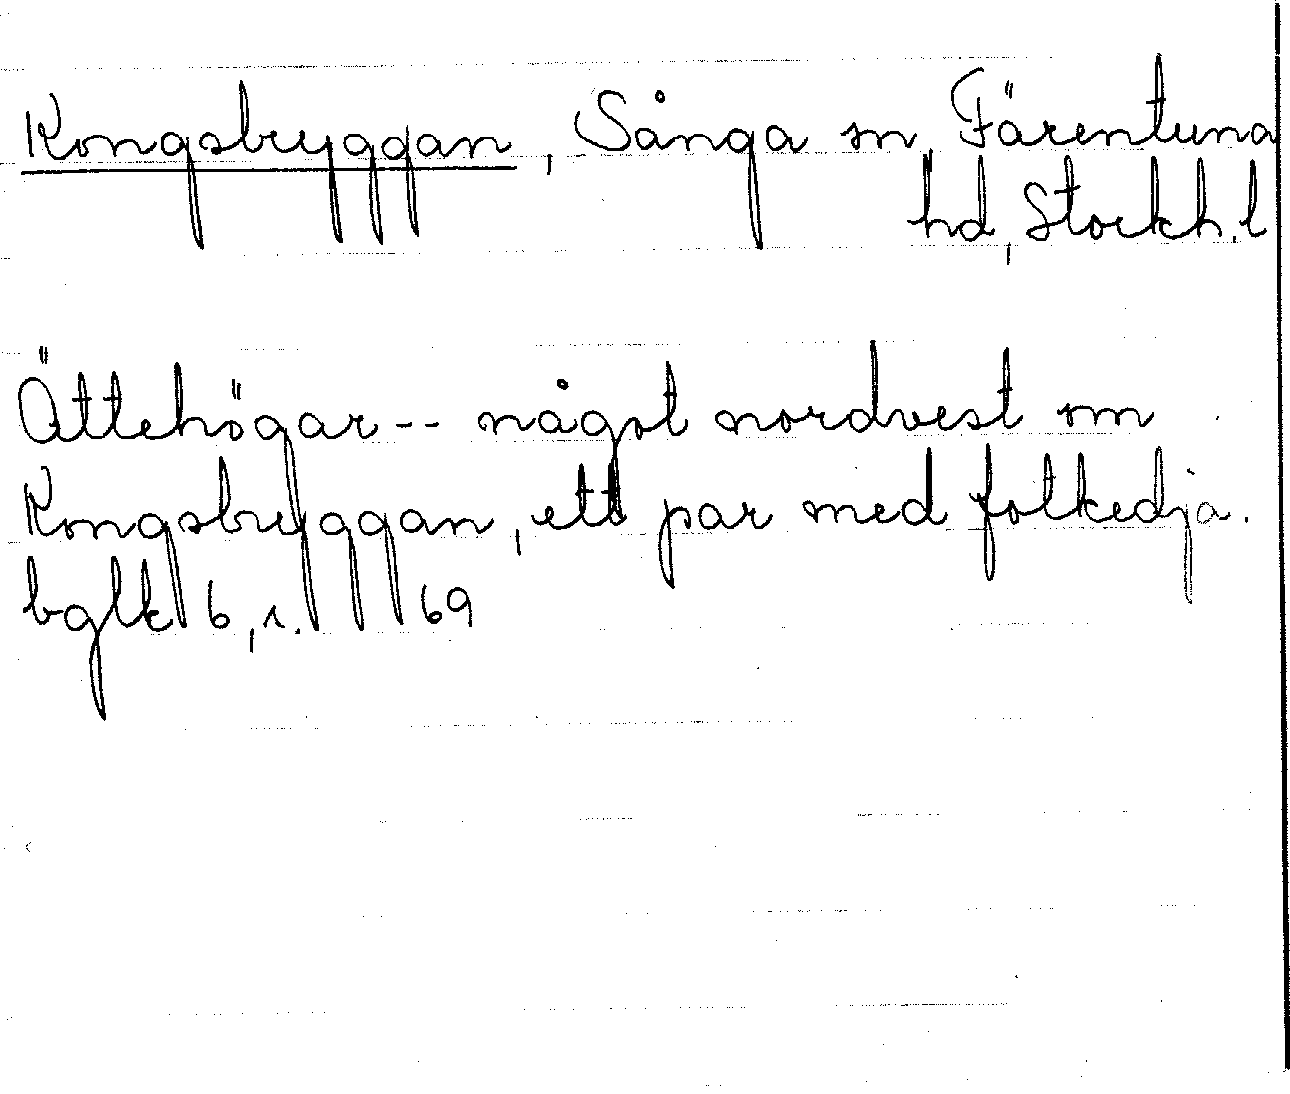 Kongsbryggan, Sånga sn, Färentuna
hd, Stockh. l
Ättehögar-- något nordvest om
Kongsbryggan, ett par med fotkedja.
bglk 6, s. 69